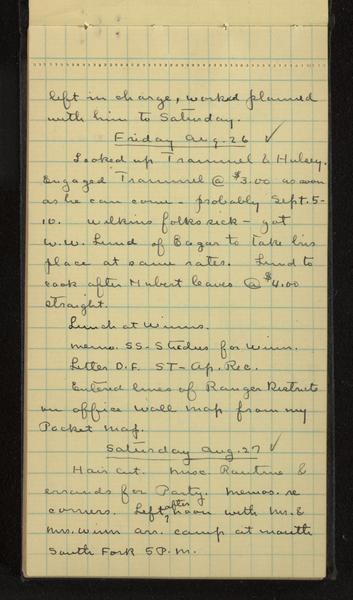 left in charge, worked planned
with him to Saturday.
Friday Aug. 26 ✓
Looked up Trammel & Hulsey.
Engaged Trammel @ $3.00 as soon
as he can come - probably Sept. 5-
10. Wilkins folks sick - got
W.W. Lund of Bagar to take his
place at same rates. Lund to
cook after Hubert leaves @ $4.00
straight.
Lunch at Winns.
Memo. SS - Studies for Winn.
Letter D.F. ST - Ap. Rec.
Extend lines of Ranger Districts
on office wall map from my
Pocket map.
Saturday Aug. 27 ✓
Hair cut. Misc Routine &
errands for Party. Memos. re
corners. Left after noon with Mr. &
Mrs. Winn arr. camp at mouth
South Fork 5 P.M.